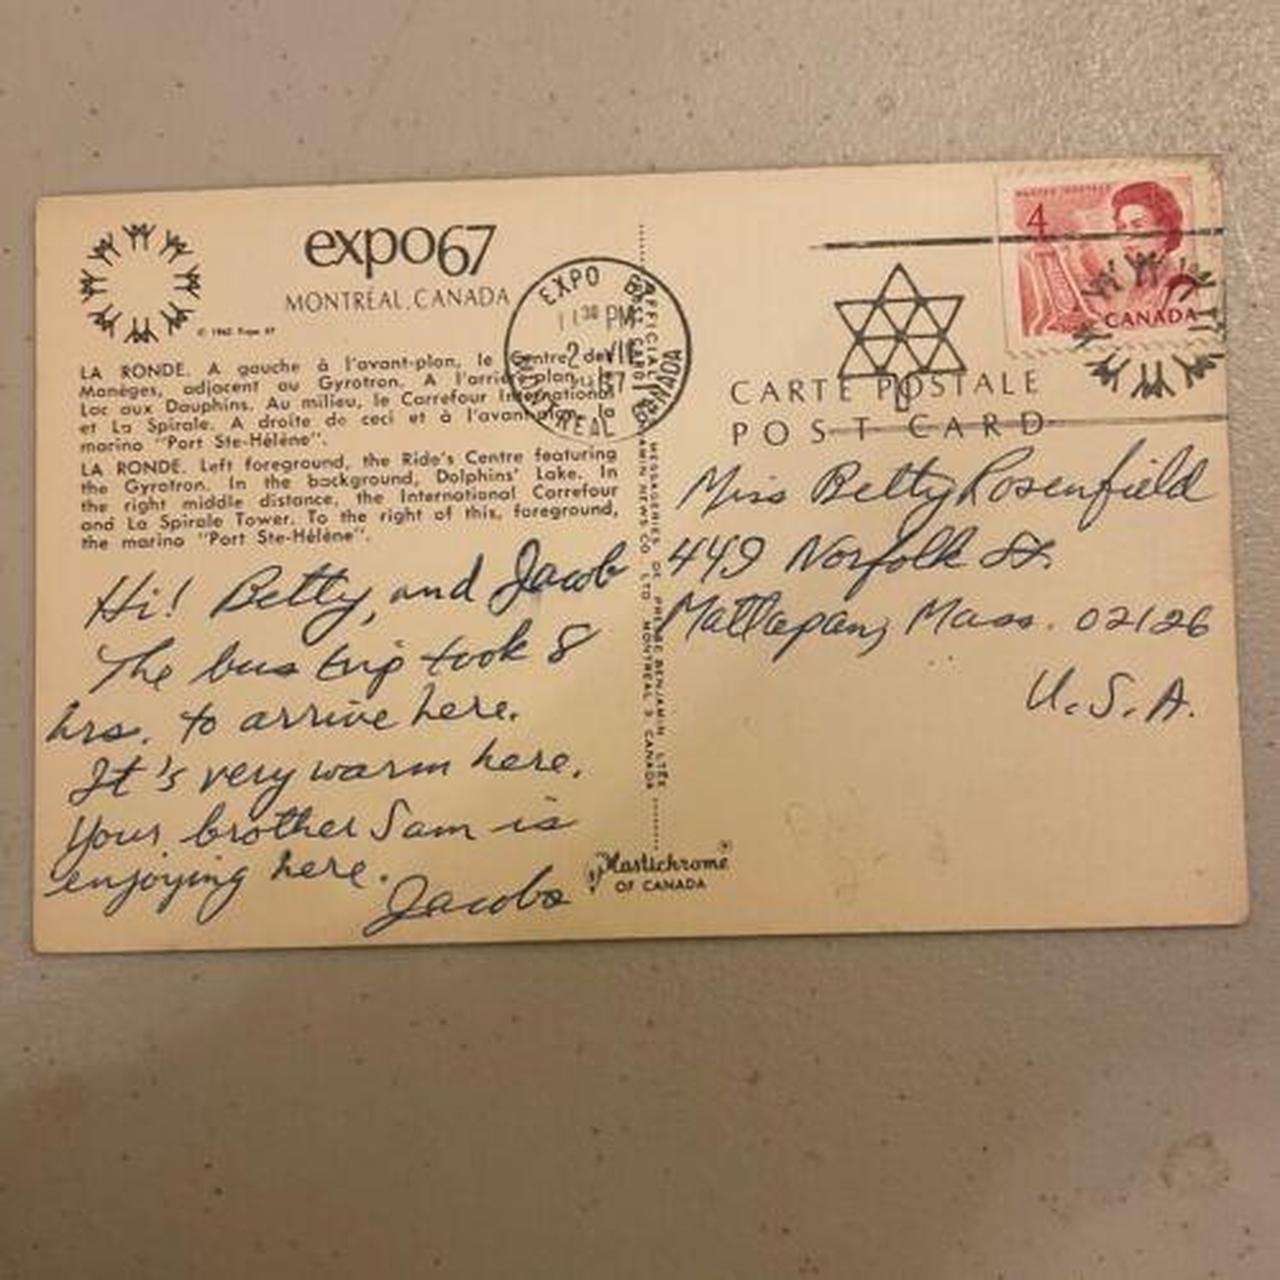 expo67
MONTRÉAL, CANADA
LA RONDE. A gauche à l'avant-plan, le Centre des
Manèges, adjacent au Gyrotron. A l'arrière-plan, le
Lac aux Dauphins. Au milieu, le Carrefour International
et La Spirale. A droite de ceci et à l'avant-plan, la
marina "Port Ste-Hélène".
LA RONDE. Left foreground, the Ride's Centre featuring
the Gyrotron. In the background, Dolphins' Lake. In
the right middle distance, the International Carrefour
and La Spirale Tower. To the right of this, foreground,
the marina "Port Ste-Hélène".
Hi! Betty, and Jacob
The bus trip took 8
hrs. to arrive here.
It's very warm here.
Your brother Sam is
enjoying here.
Jacobs
EXPO
PM
2 VII
67
MONTREAL CANADA
OFFICIAL POST CARD
MESSAGERIES DE PRESSE BENJAMIN LTÉE
BENJAMIN NEWS CO. LTD. MONTREAL 3 CANADA
Plastichrome
OF CANADA
4
CANADA
CARTE POSTALE
POST CARD
Miss Betty Rosenfield
449 Norfolk St.
Mattapan, Mass. 02126
U.S.A.